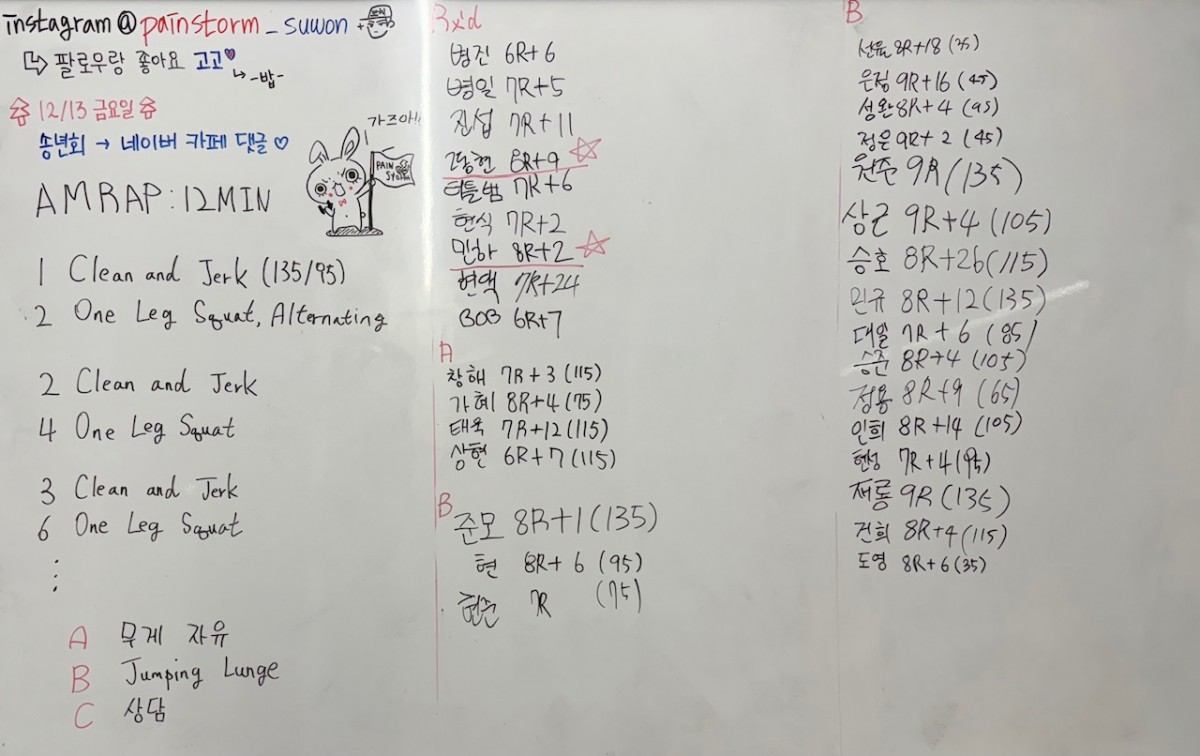 instagram@painstorm_suwon
팔로우랑 좋아요 고고
-밥-
12/13 금요일
송년회 → 네이버 카페 댓글 ♡
가즈아!!
PAIN STORM
AMRAP:12MIN
1 Clean and Jerk (135/95)
2 One Leg Squat, Alternating
2 Clean and Jerk
4 One Leg Squat
3 Clean and Jerk
6 One Leg Squat
A 무게 자유
B Jumping Lunge
C 상담
Rx'd
병진 6R+6
병일 7R+5
진섭 7R+11
8R+9
터틀범 7R+6
현식 7R+2
민하 8R+2
현액 7R+24
BOB 6R+7
A
창해 7R+3 (115)
가혜 8R+4 (75)
태욱 7R+12 (115)
상현 6R+7 (115)
B
준모 8R+1 (135)
현 8R+6 (95)
현준 7R (75)
B
8R+18 (35)
은정 9R+16 (45)
성완 8R+4 (95)
정은 9R+2 (45)
원준 9R (135)
상근 9R+4 (105)
승호 8R+26 (115)
민규 8R+12 (135)
대일 7R+6 (85)
승준 8R+4 (105)
정용 8R+9 (65)
인희 8R+14 (105)
7R+4 (95)
재룡 9R (135)
건희 8R+4 (115)
도영 8R+6 (35)